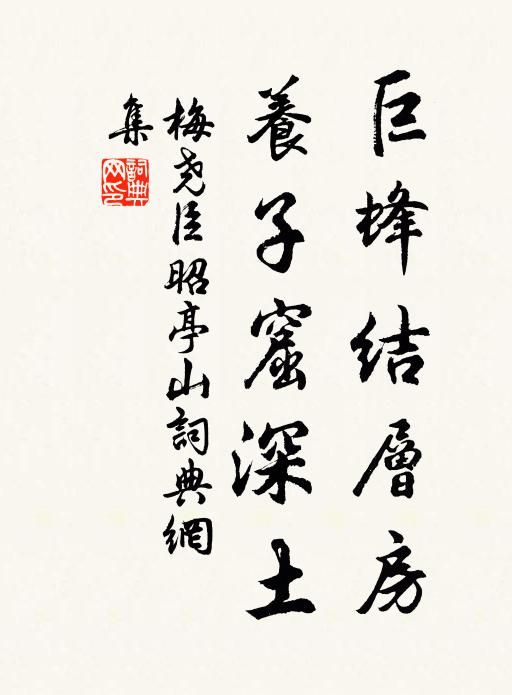 巨蜂结層房
養子窟深土
梅尧臣昭亭山詞典網
集
詞典网印